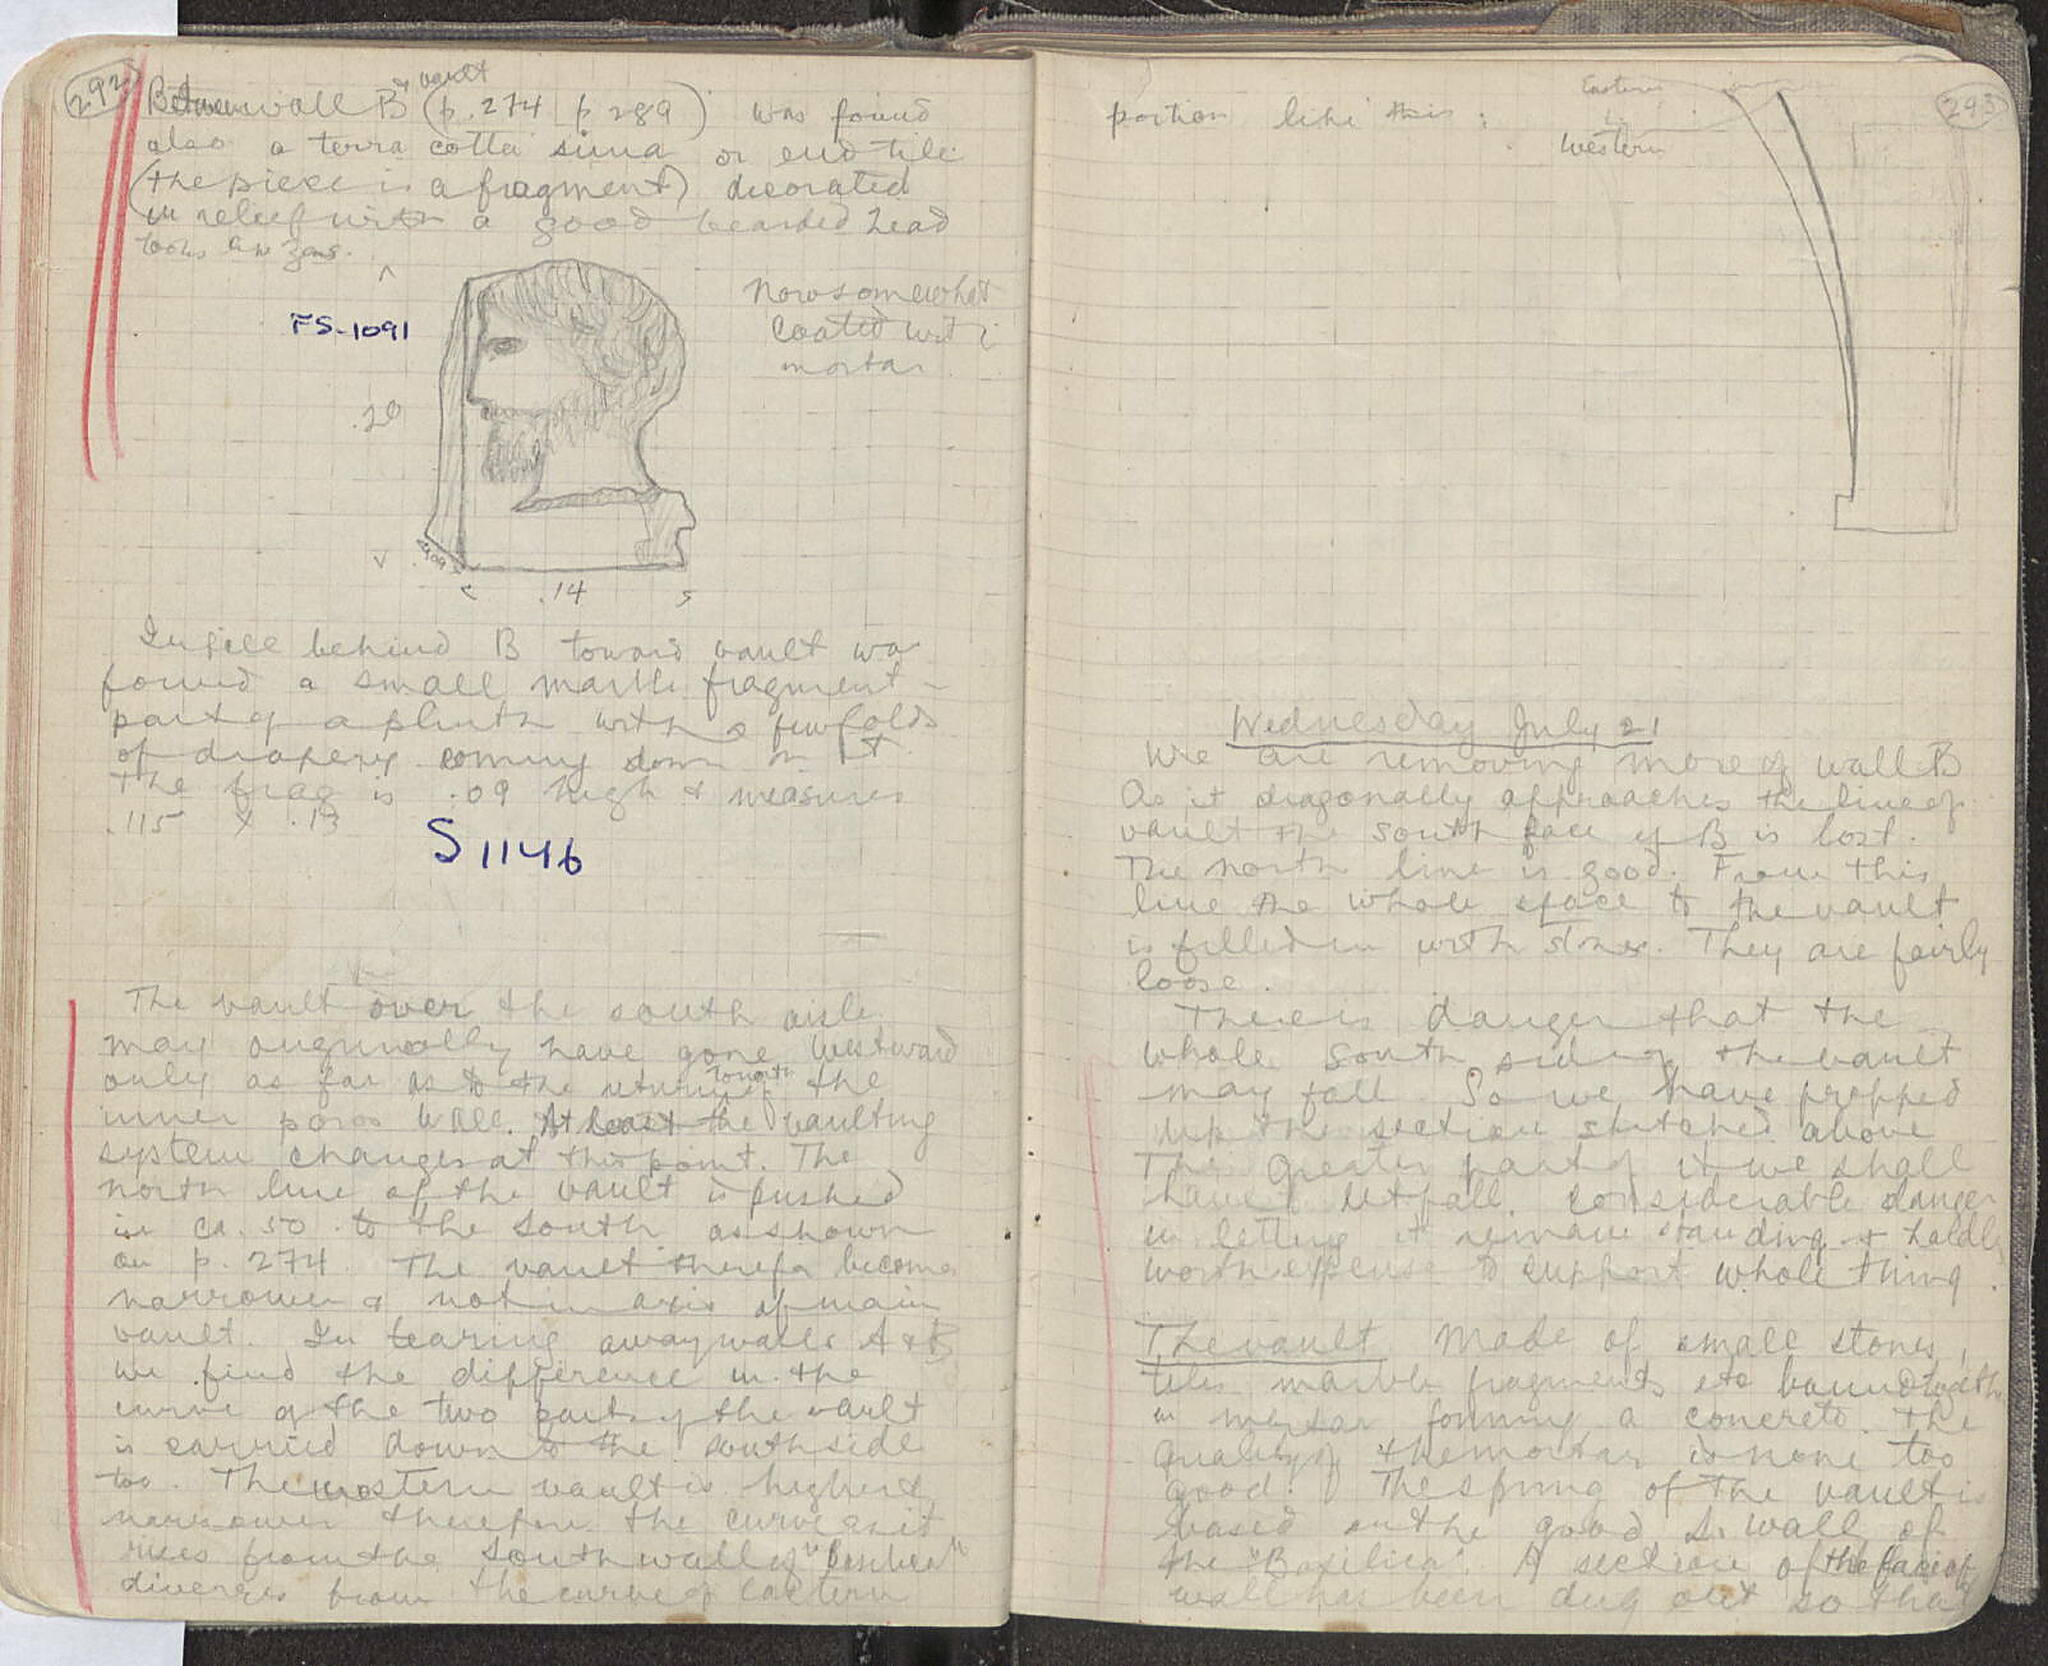 292
Between wall B & vault (p. 274 p 289) was found
also a terra cotta sima or end tile
(the piece is a fragment) decorated
in relief with a good bearded head
looks like Zeus.
FS-1091
now somewhat
coated with
mortar
.20
.09
.14
In fill behind B toward vault was
found a small marble fragment –
part of a plinth with a few folds
of drapery coming down on it
The frag is .09 high & measures
.115 x .13
S 1146
The vault over the south aisle
may originally have gone westward
only as far as to the return to north of the
inner poros wall. At least the vaulting
system changes at this point. The
north line of the vault is pushed
in ca. 50 to the south as shown
on p. 274. The vault therefor becomes
narrower & not in axis of main
vault. In tearing away walls A & B
we find the difference in the
curve of the two parts of the vault
is carried down to the south side
too. The western vault is higher &
narrower therefore the curve as it
rises from the south wall of "Basilica"
diverges from the curve of eastern
293
portion like this :
Eastern
Western
Wednesday July 21
We are removing more of wall B
As it diagonally approaches the line of
vault the south face of B is lost.
The north line is good. From this
line the whole space to the vault
is filled in with stones. They are fairly
loose.
There is danger that the
whole south side of the vault
may fall So we have propped
up the section sketched above
The greater part of it we shall
have let fall. Considerable danger
in letting it remain standing & hardly
worth expense to support whole thing.
The vault Made of small stones,
tiles marble fragments etc bound together
in mortar forming a concrete. The
quality of the mortar is none too
good. The spring of the vault is
based on the good S. wall of
the "Basilica". A section of the face of
wall has been dug out so that